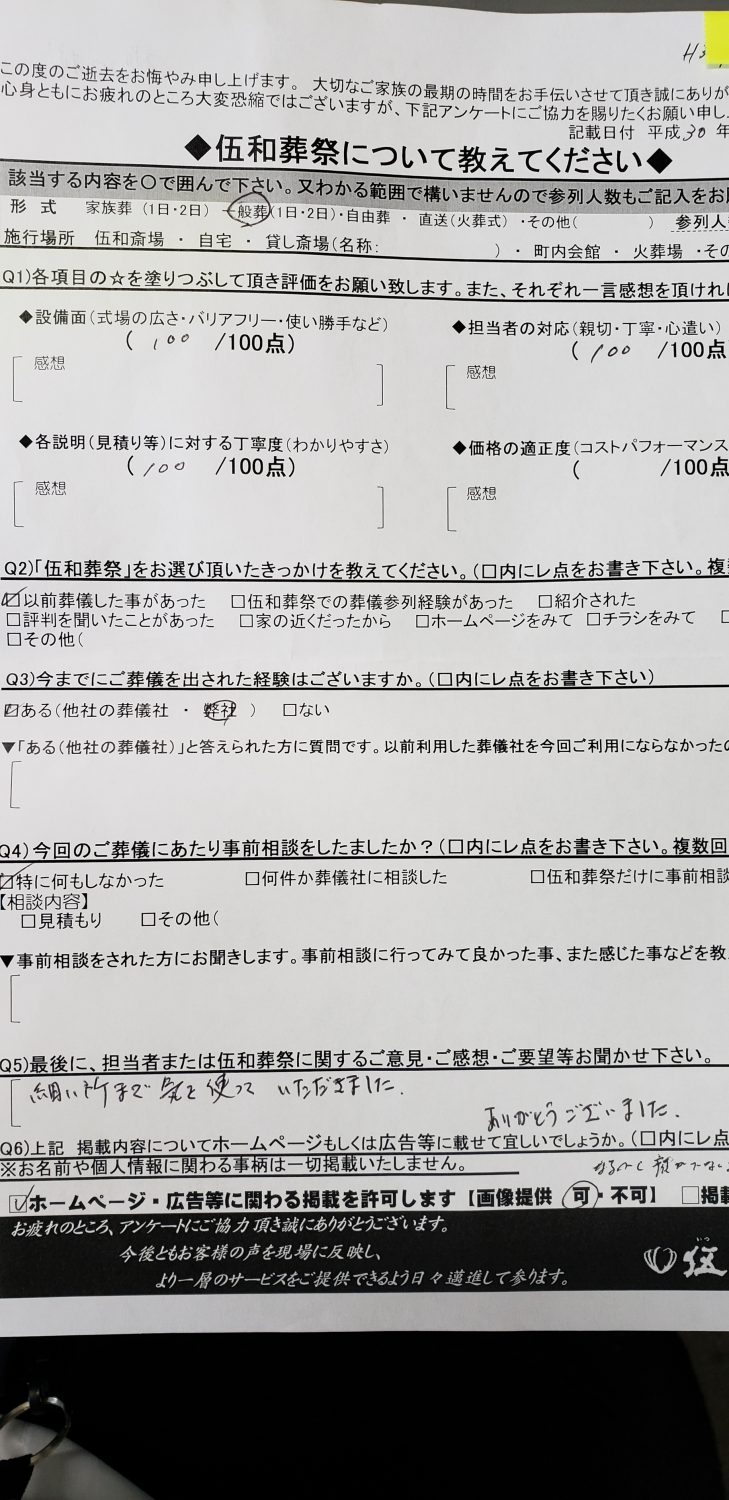 H3
この度のご逝去をお悔やみ申し上げます。 大切なご家族の最期の時間をお手伝いさせて頂き誠にありが
心身ともにお疲れのところ大変恐縮ではございますが、下記アンケートにご協力を賜りたくお願い申し
記載日付 平成30年
◆伍和葬祭について教えてください◆
該当する内容を〇で囲んで下さい。又わかる範囲で構いませんので参列人数もご記入をお
形 式 家族葬 (1日・2日) 一般葬(1日・2日)・自由葬 ・ 直送(火葬式) ・その他( ) 参列人
施行場所 伍和斎場 ・ 自宅 ・ 貸し斎場(名称: ) ・ 町内会館 ・ 火葬場 ・その
Q1)各項目の☆を塗りつぶして頂き評価をお願い致します。また、それぞれ一言感想を頂ければ
◆設備面(式場の広さ・バリアフリー・使い勝手など) ◆担当者の対応(親切・丁寧・心遣い)
( 100 /100点) ( 100 /100点
感想 感想
◆各説明(見積り等)に対する丁寧度(わかりやすさ) ◆価格の適正度(コストパフォーマンス
( 100 /100点) ( /100点
感想 感想
Q2)「伍和葬祭」をお選び頂いたきっかけを教えてください。(□内にレ点をお書き下さい。複
☑以前葬儀した事があった □伍和葬祭での葬儀参列経験があった □紹介された
□評判を聞いたことがあった □家の近くだったから □ホームページをみて □チラシをみて □
□その他(
Q3)今までにご葬儀を出された経験はございますか。(□内にレ点をお書き下さい)
☑ある(他社の葬儀社 ・ 弊社 ) □ない
▼「ある(他社の葬儀社)」と答えられた方に質問です。以前利用した葬儀社を今回ご利用にならなかったの
Q4)今回のご葬儀にあたり事前相談をしましたか?(□内にレ点をお書き下さい。複数回
☑特に何もしなかった □何件か葬儀社に相談した □伍和葬祭だけに事前相談
【相談内容】
□見積もり □その他(
▼事前相談をされた方にお聞きします。事前相談に行ってみて良かった事、また感じた事などを教
Q5)最後に、担当者または伍和葬祭に関するご意見・ご感想・ご要望等お聞かせ下さい。
細い所まで気を使って いただきました.
ありがとうございました.
Q6)上記 掲載内容についてホームページもしくは広告等に載せて宜しいでしょうか。(□内にレ点
※お名前や個人情報に関わる事柄は一切掲載いたしません。
☑ホームページ・広告等に関わる掲載を許可します【画像提供 可・不可】 □掲
お疲れのところ、アンケートにご協力頂き誠にありがとうございます。
今後ともお客様の声を現場に反映し、
より一層のサービスをご提供できるよう日々邁進して参ります。
いつ
伍